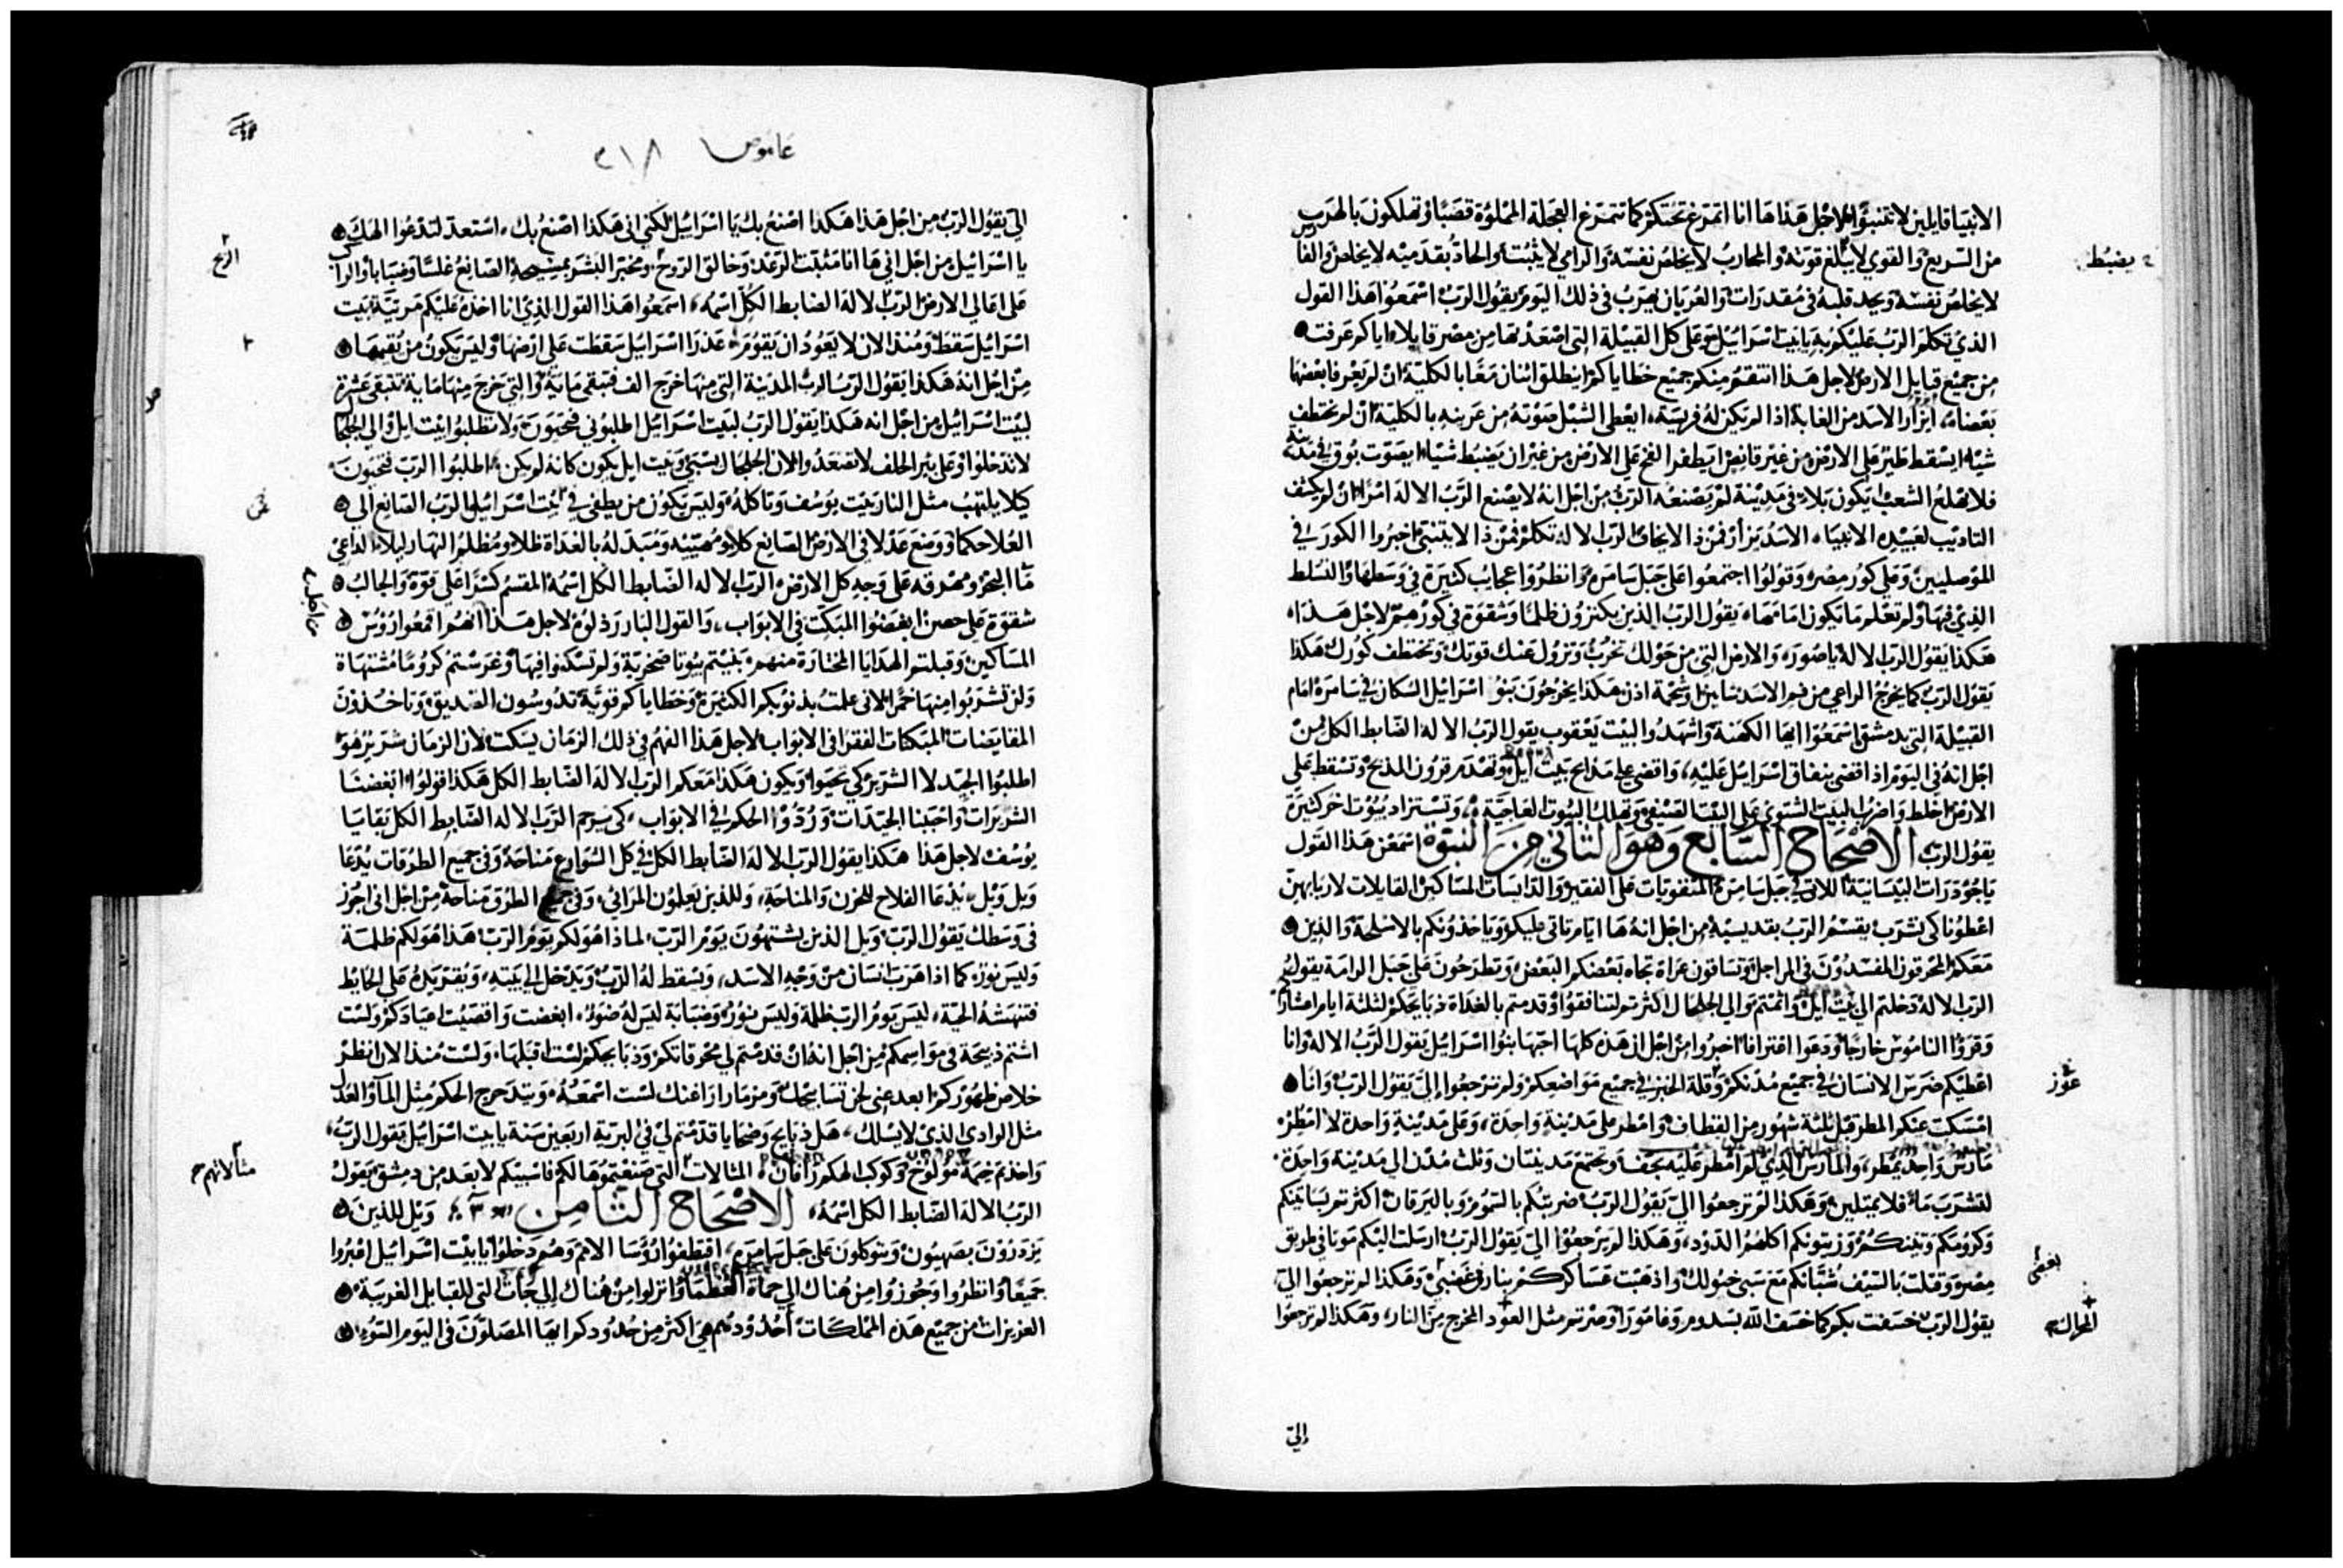 الانبيا قايلين لا تتنبوا لاجل هذا ها انا اتمرغ تحتكم كما تتمرغ العجلة المملوة قصبا وتهلكون بالهرب
من السريع والقوي لا يبلغ قوته والمحارب لا يخلص نفسه والرامي لا يثبت والحاد بقدميه لا يخلص والفارس
لا يخلص نفسه ويجد قلبه في مقدرات والعريان يهرب في ذلك اليوم يقول الرب اسمعوا هذا القول
الذي تكلم الرب عليكم به يا بيت اسراييل وعلى كل القبيلة التي اصعدتها من مصر قايلا اياكم عرفت
من جميع قبايل الارض لاجل هذا انتقم منكم جميع خطاياكم اينطلق اثنان معا بالكلية ان لم يعرفا بعضها
بعضا ايزار الاسد من الغابة اذا لم تكن له فريسة ايعطي الشبل صوته من عرينه بالكلية ان لم يختطف
شيا ايسقط طير على الارض من غير قانص ايطفر الفخ على الارض من غير ان يضبط شيا ايصوت بوق في مدينة
فلا يهلع الشعب ايكون بلاء في مدينة لم يصنعه الرب من اجل انه لا يصنع الرب الاله امرا ان لم يكشف
التاديب لعبيده الانبياء الاسد يزار فمن ذا لا يخاف الرب الاله تكلم فمن ذا لا يتنبى اخبروا الكور في
الموصليين وعلى كور مصر وقولوا اجتمعوا على جبل سامرة وانظروا عجايب كثيرة في وسطها والتسلط
الذي فيها ولم تعلم ما يكون امامها يقول الرب الذين يكنزون ظلما وشقوة في كورهم لاجل هذا
هكذا يقول الرب الاله يا صور والارض التي من حولك تخرب وتزول عنك قوتك وتختطف كورك هكذا
يقول الرب كما يخرج الراعي من فم الاسد ساقين او شحمة اذن هكذا يخرجون بنو اسراييل السكان في سامرة امام
القبيلة التي بدمشق اسمعوا ايها الكهنة واشهدوا لبيت يعقوب يقول الرب الاله الضابط الكل من
اجل انه في اليوم اذا اقضي بنفاق اسراييل عليه واقضي على مذابح بيت ايل وتهدم قرون المذبح وتسقط على
الارض اخلط واضرب البيت الشتوي على البيت الصيفي وتهلك البيوت العاجية وتستزاد بيوت اخر كثيرة
يقول الرب الاصحاح السابع وهو الثاني من النبوة اسمعن هذا القول
يا جوذرات البيسانية اللاتي في جبل سامرة المتقويات على الفقير والدايسات المساكين القايلات لاربابهن
اعطونا كي نشرب يقسم الرب بقديسيه من اجل انه ها ايام تاتي عليكم وياخذونكم بالاسلحة والذين
معكم المحرقون المفسدون في المراجل وتساقون عراة تجاه بعضكم البعض وتطرحون على جبل الرامة يقول
الرب الاله دخلتم الى بيت ايل واثمتم والى الجلجال اكثرتم لتنافقوا وقدمتم بالغداة ذبايحكم لثلثة ايام اعشاركم
وقروا الناموس خارجا ودعوا اقترافا اخبروا من اجل ان هذه كلها احبها بنوا اسراييل يقول الرب الاله وانا
اعطيكم ضرس الانسان في جميع مدنكم وقلة الخبز في جميع مواضعكم ولم ترجعوا الي يقول الرب وانا
امسكت عنكم المطر قبل ثلثة شهور من القطاف وامطر على مدينة واحدة وعلى مدينة واحدة لا امطر
مارس واحد يمطر والمارس الذي لم امطر عليه يجف وتجتمع مدينتان وثلث مدن الى مدينة واحدة
لتشرب ما فلا يمتلين وهكذا لم ترجعوا الي يقول الرب ضربتكم بالسموم وباليرقان اكثرتم بساتينكم
وكرومكم وتينكم وزيتونكم اكلهم الدود وهكذا لم ترجعوا الي يقول الرب ارسلت اليكم موتا في طريق
مصر وقتلت بالسيف شبانكم مع سبي خيولك واذهبت عساكركم بنار في غضبي وهكذا لم ترجعوا الي
يقول الرب خسفت بكم كما خسف الله بسدوم وغامورا وصرتم مثل العود المخرج من النار وهكذا لم ترجعوا
الي
يضبط
عوز
بغضي
المحراك
عاموص ٢١٨
الي يقول الرب من اجل هذا هكذا اصنع بك يا اسراييل لكني اني هكذا اصنع بك استعد لتدعوا الهك
يا اسراييل من اجل اني ها انا مثبت الرعد وخالق الروح ومخبر البشر بمسيحه الصانع غلسا وضبابا والراكب
على اعالي الارض الرب الاله الضابط الكل اسمه اسمعوا هذا القول الذي انا اخذه عليكم مرثية بيت
اسراييل سقط ومنذ الان لا يعود ان يقوم عذرا اسراييل سقطت على ارضها وليس يكون من يقيمها
من اجل انه هكذا يقول الرب الرب المدينة التي منها خرج الف فتبقى ماية والتي خرج منها ماية تتبقى عشرة
لبيت اسراييل من اجل انه هكذا يقول الرب لبيت اسراييل اطلبوني فتحيون ولا تطلبوا بيت ايل والى الجلجال
لا تدخلوا وعلى بير الحلف لا تصعدوا لان الجلجال يسبى وبيت ايل يكون كانه لم يكن اطلبوا الرب فتحيون
كيلا يلتهب مثل النار بيت يوسف وتاكله وليس يكون من يطفي في بيت اسراييل الرب الصانع الى
العلا حكما ووضع عدلا في الارض الصانع كلا ومهييه ومبدله بالغداة ظلا ومظلم النهار ليلا الداعي
ما البحر ومهرقه على وجه كل الارض الرب الاله الضابط الكل اسمه المقسم كسرا على قوة والجالب
شقوة على حصن ابغضوا المبكت في الابواب والقول البار رذلوه لاجل هذا انهم اقمعوا رؤوس
المساكين وقبلتم الهدايا المختارة منهم بنيتم بيوتا صخرية ولم تسكنوا فيها وغرستم كروما مشتهاة
ولن تشربوا منها خمرا لاني علمت بذنوبكم الكثيرة وخطاياكم قوية تدوسون الصديق وتاخذون
المقايضات المبكتات الفقرا في الابواب لاجل هذا الفهم في ذلك الزمان يسكت لان الزمان شرير هو
اطلبوا الجيد لا الشرير كي تحيوا ويكون هكذا معكم الرب الاله الضابط الكل هكذا قولوا ابغضنا
الشريرات واحببنا الجيدات وردوا الحكم في الابواب كي يرحم الرب الاله الضابط الكل بقايا
يوسف لاجل هذا هكذا يقول الرب الاله الضابط الكل في كل الشوارع مناحة وفي جميع الطرقات يدعا
ويل ويل يدعا الفلاح للحزن والمناحة وللذين يعلمون المراثي وفي جميع الطرق مناحة من اجل اني اجوز
في وسطك يقول الرب ويل الذين يشتهون يوم الرب لماذا هو لكم يوم الرب هذا هو لكم ظلمة
وليس نور كما اذا هرب انسان من وجه الاسد ويسقط له الدب ويدخل الى بيته ويقر يده على الحايط
فتنهشه الحية ليس يوم الرب ظلمة وليس نور وضبابة ليس له ضوء ابغضت واقصيت اعيادكم ولست
اشتم ذبيحة في مواسمكم من اجل انه ان قدمتم لي محرقاتكم وذبايحكم لست اقبلها ولست منذ الان انظر
خلاص ظهوركم ابعد عني لحن تسابيحك ومزمارا راغنك لست اسمعه ويتدحرج الحكم مثل الماء والعدل
مثل الوادي الذي لا يسلك هل ذبايح وضحايا قدمتم لي في البرية اربعين سنة يا بيت اسراييل يقول الرب
واخذتم خيمة مولوخ وكوكب الهكم رافان المثالات التي صنعتموها لكم فاسبيكم لابعد من دمشق يقول
الرب الاله الضابط الكل اسمه الاصحاح الثامن ٣ ويل للذين
يزدرون بصهيون ويتوكلون على جبل سامرة اقتطفوا رؤسا الامم وهم دخلوا يا بيت اسراييل اعبروا
جميعا وانظروا وجوزوا من هناك الى حماة العظما وانزلوا من هناك الى جات التي للقبايل الغريبة
العزيزات من جميع هذه المملكات أحدودهم هي اكثر من حدودكم ايها المصلون في اليوم السوء
الريح
من اجل
مثالاتهم